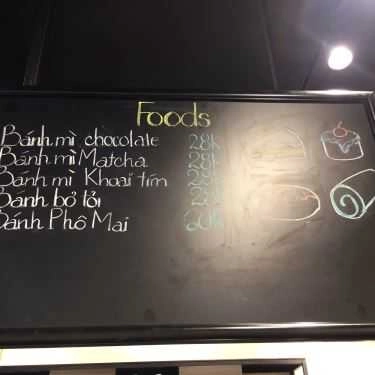 Foods
Bánh mì chocolate 28k
Bánh mì Matcha 28k
Bánh mì Khoai tím 28k
Bánh bơ tỏi 28k
Bánh Phô Mai 60k